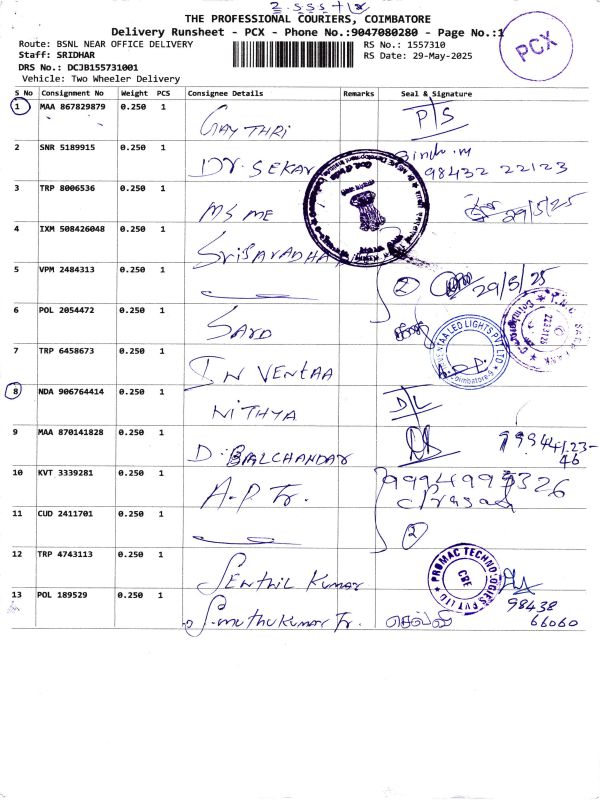 THE PROFESSIONAL COURIERS, COIMBATORE
Delivery Runsheet - PCX - Phone No.:9047080280 - Page No.:1
Route: BSNL NEAR OFFICE DELIVERY
RS No.: 1557310
Staff: SRIDHAR
RS Date: 29-May-2025
DRS No.: DCJB155731001
Vehicle: Two Wheeler Delivery
PCX
S No Consignment No Weight PCS Consignee Details Remarks Seal & Signature
1 MAA 867829879 0.250 1 GAYTHRI P/S
2 SNR 5189915 0.250 1 DR. SEKAR 98432 22123
3 TRP 8006536 0.250 1 MSME 29/5/25
4 IXM 508426048 0.250 1
5 VPM 2484313 0.250 1 2 29/5/25
6 POL 2054472 0.250 1
7 TRP 6458673 0.250 1 IN VENTAA
VENTAA LED LIGHTS PVT LTD
Coimbatore-9
8 NDA 906764414 0.250 1 NITHYA D/L
9 MAA 870141828 0.250 1 D. BALCHANDAR 99944123-
46
10 KVT 3339281 0.250 1 A.P Tr.
11 CUD 2411701 0.250 1 2
12 TRP 4743113 0.250 1 SENTHIL KUMAR
PROMAC TECHNOLOGIES PVT LTD
CBE
13 POL 189529 0.250 1 S. muthukumar Tr. செல்வி 98438
66060